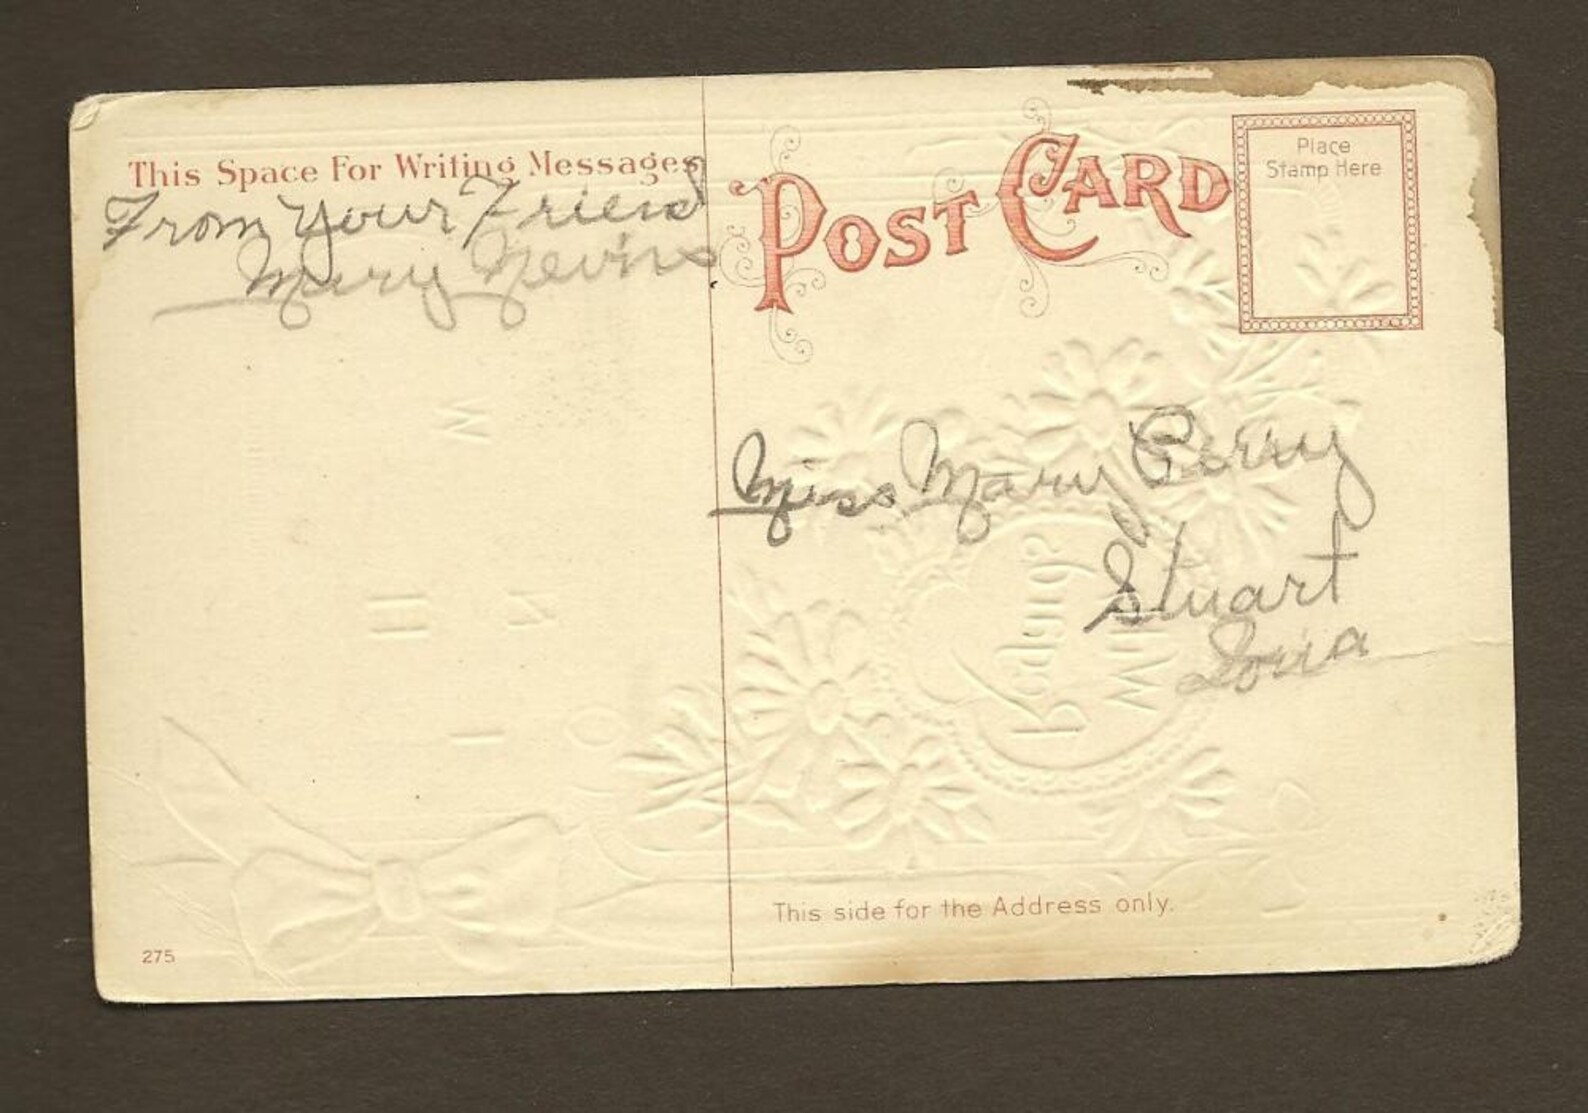 This Space For Writing Messages
From Your Friend
Mary Nevins
POST CARD
Place
Stamp Here
Miss Mary Perry
Stuart
Iowa
This side for the Address only.
275